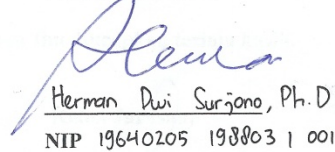 Herman Dwi Surjono, Ph.D
NIP 19640205 198803 1 001